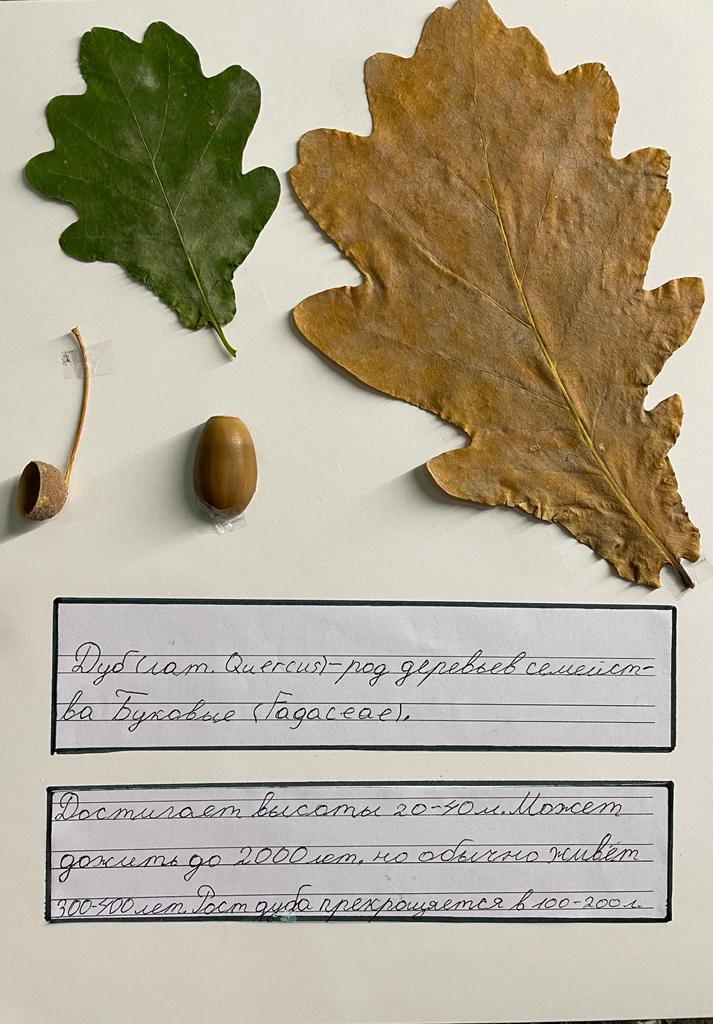 Дуб (лат. Quercus) - род деревьев семейст-
ва Буковые (Fagaceae).
Достигает высоты 20-40 м. Может
дожить до 2000 лет, но обычно живёт
300-400 лет. Рост дуба прекращается в 100-200 л.